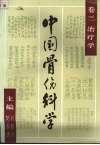 卷二 治疗学
中国骨伤科学
主编